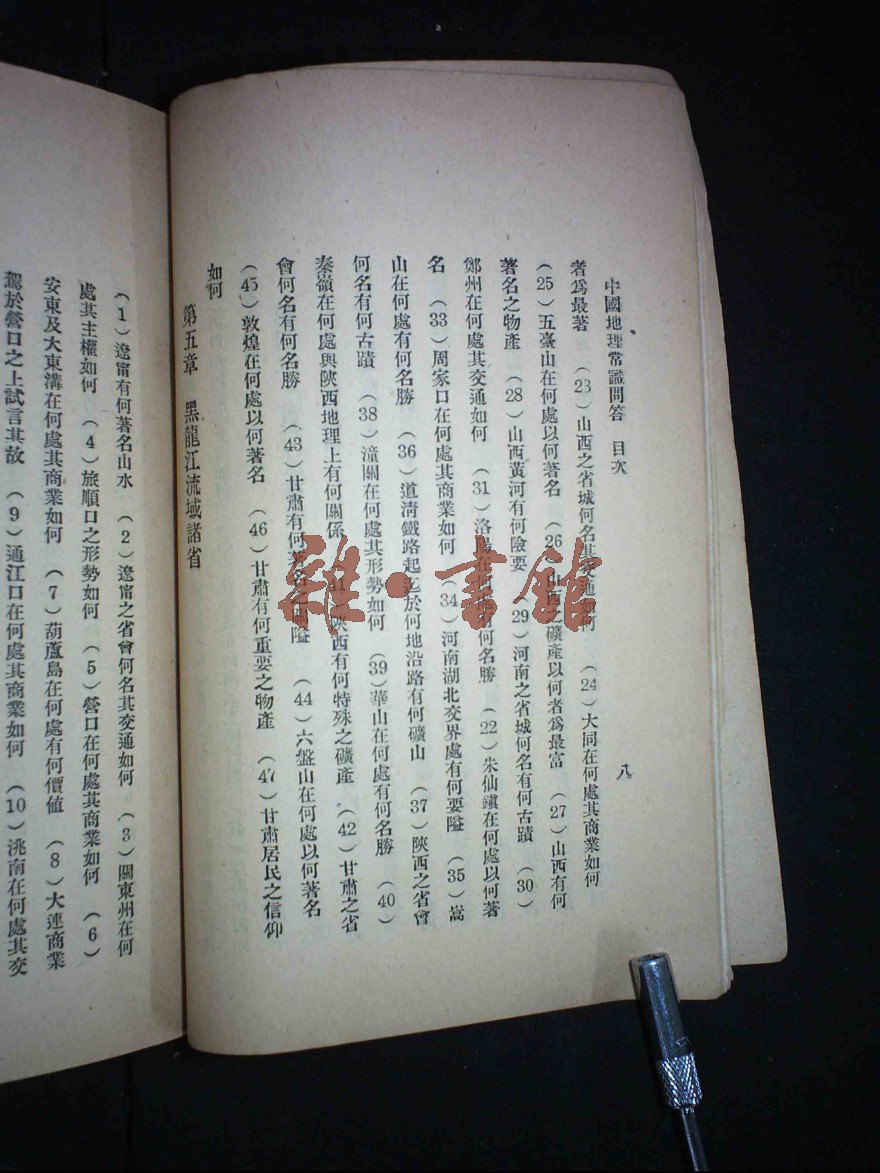 中國地理常識問答　目次
八
者爲最著　（23）山西之省城何名其交通如何　（24）大同在何處其商業如何
（25）五臺山在何處以何著名　（26）山西之礦產以何者爲最富　（27）山西有何
著名之物產　（28）山西黃河有何險要　（29）河南之省城何名有何古蹟　（30）
鄭州在何處其交通如何　（31）洛陽在何處有何名勝　（22）朱仙鎭在何處以何著
名　（33）周家口在何處其商業如何　（34）河南湖北交界處有何要隘　（35）嵩
山在何處有何名勝　（36）道淸鐵路起迄於何地沿路有何礦山　（37）陝西之省會
何名有何古蹟　（38）潼關在何處其形勢如何　（39）華山在何處有何名勝　（40）
秦嶺在何處與陝西地理上有何關係　（41）陝西有何特殊之礦產　（42）甘肅之省
會何名有何名勝　（43）甘肅有何著名之關隘　（44）六盤山在何處以何著名
（45）敦煌在何處以何著名　（46）甘肅有何重要之物產　（47）甘肅居民之信仰
如何
第五章　黑龍江流域諸省
（1）遼甯有何著名山水　（2）遼甯之省會何名其交通如何　（3）關東州在何
處其主權如何　（4）旅順口之形勢如何　（5）營口在何處其商業如何　（6）
安東及大東溝在何處其商業如何　（7）葫蘆島在何處有何價値　（8）大連商業
駕於營口之上試言其故　（9）通江口在何處其商業如何　（10）洮南在何處其交
雜·書館